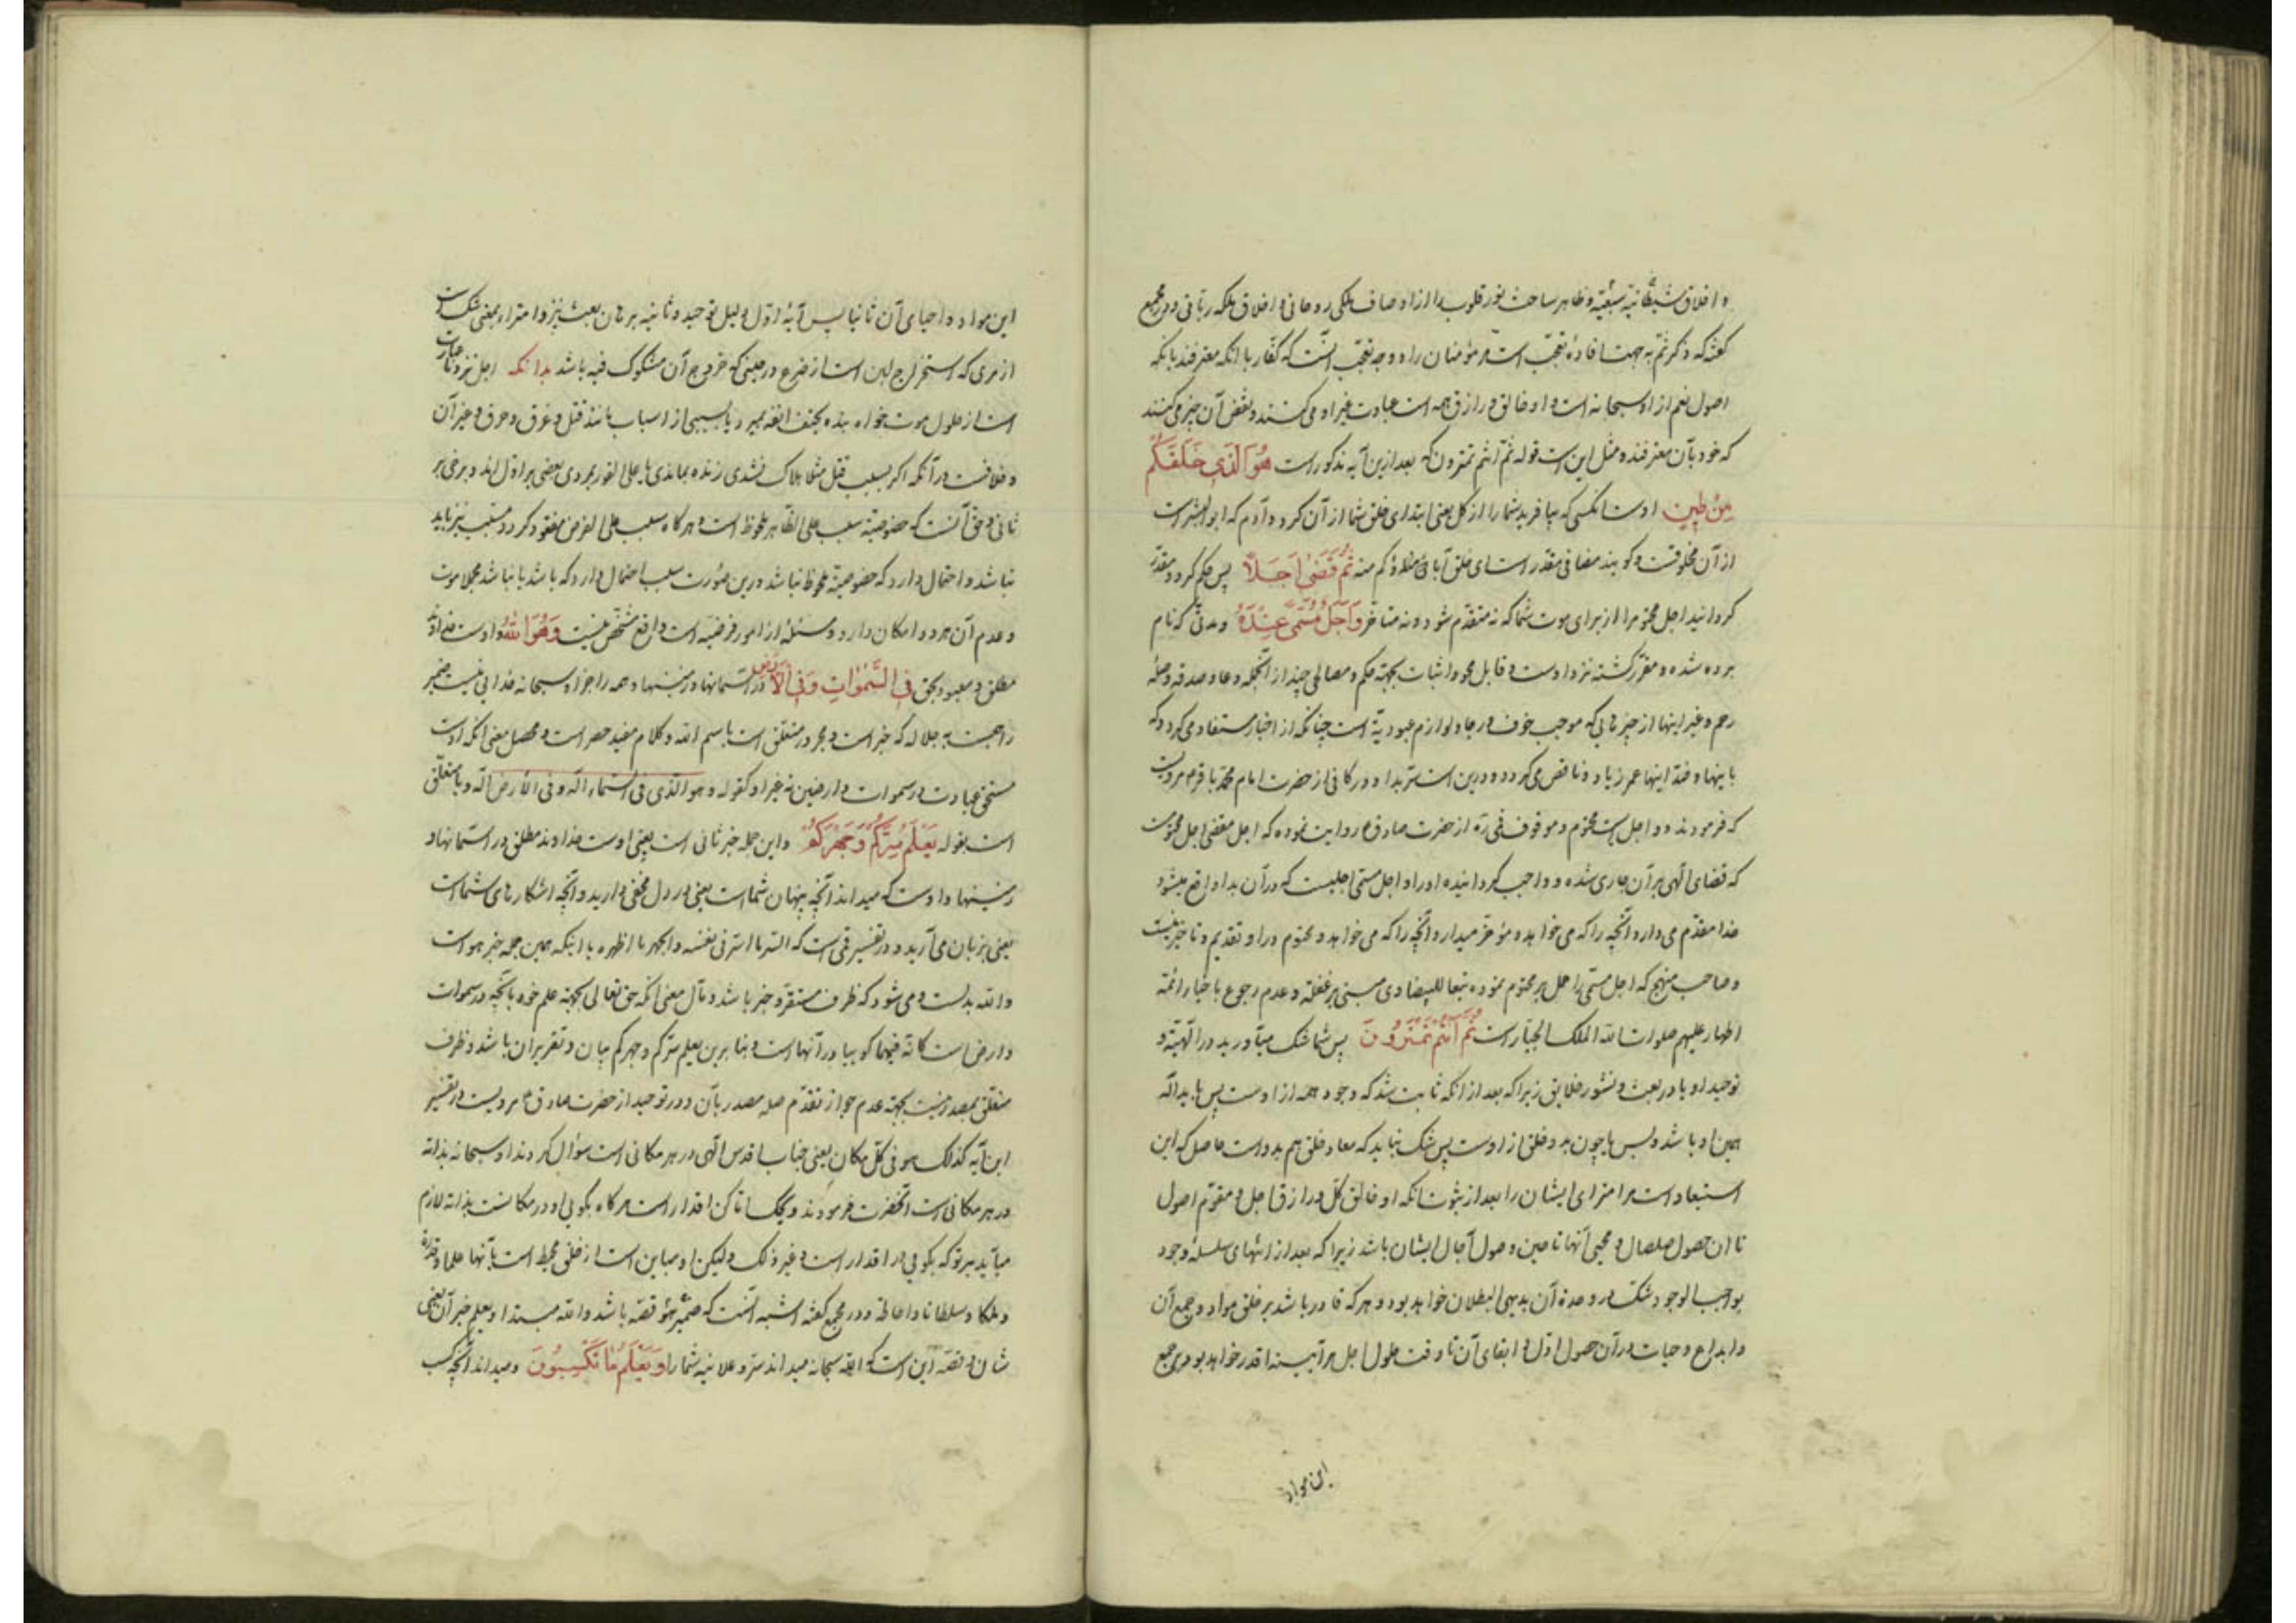 و اخلاق شیطانیه سبعیّه و ظاهر ساخت نور قلوب را از اوصاف ملکی روحانی و اخلاق ملکه ربّانی و در مجمع
گفته که ذکر ثمّ به جهت افادهٔ تعجّب است مر مؤمنان را و وجه تعجّب آنست که کفّار با آنکه معترفند بآنکه
اصول نعم از او سبحانه است و او خالق و رازق همه است عبادت غیر او می کنند و نقض آن چیز می کنند
که خود بآن معترفند و مثل این است قوله ثمّ انتم تمترون که بعد ازین آیه مذکور است هُوَ الَّذی خَلَقَکُم
مِن طینٍ اوست آنکسی که بیافرید شما را از گل یعنی ابتدای خلق شما از آن کرد و آدم که ابوالبشر است
از آن مخلوقست و گویند مضافی مقدّر است ای خلق آباءکم منه ثُمَّ قَضی اَجَلاً پس حکم کرد و مقدّر
گردانید اجل محتوم را از برای موت شما که نه متقدّم شود و نه متأخّر وَ اَجَلٌ مُسَمّیً عِندَهُ و مدتی که نام
برده شده و مقرّر گشته نزد اوست و قابل محو و اثبات بجهة حکم و مصالحی چند از آنجمله دعا و صدقه و صلهٔ
رحم و غیر اینها از چیزهایی که موجب خوف و رجا و لوازم عبودیّة است چنانکه از اخبار مستفاد می گردد که
باینها و ضدّ اینها عمر زیاد و ناقص می گردد و درین است سرّ بدا و در کافی از حضرت امام محمّد باقر ع مرویست
که فرمودند دو اجل است محتوم و موقوف قمّی ره از حضرت صادق ع روایت نموده که اجل مقضی اجل محتوم است
که قضای الهی بر آن جاری شده و واجب گردانیده او را و اجل مسمّی اجلیست که در آن بدا واقع میشود
خدا مقدّم می دارد آنچه را که می خواهد و مؤخّر میدارد آنچه را که می خواهد و محتوم در او تقدیم و تأخیر نیست
و صاحب منهج که اجل مسمّی را حمل بر محتوم نموده تبعا للبیضاوی مبنی بر غفلة و عدم رجوع باخبار ائمّه
اطهار علیهم صلوات الله الملک الجبّار است ثُمَّ اَنتُم تَمتَرُونَ پس شما شک میآورید در الهیّة و
توحید او یا در بعث و نشور خلایق زیرا که بعد از آنکه ثابت شد که وجود همه از اوست پس باید اله
همین او باشد و بس یا چون بدو خلق از اوست پس شک نباید که معاد خلق هم بدو است حاصل که این
استبعاد است مر امترای ایشان را بعد از ثبوت آنکه او خالق کلّ و رازق اجل و مقوّم اصول
تا آن حصول صلصال و محیی آنها تا حین وصول آجال ایشان باشد زیرا که بعد از انتهای سلسلهٔ وجود
بواجب الوجود شک در وحدة آن بدیهی البطلان خواهد بود و هر که قادر باشد بر خلق مواد و جمع آن
و ابداع حیات در آن حصول اوّل و ابقای آن تا وقت حلول اجل هر آیینه اقدر خواهد بود بر جمع
این مواد
این مواد و احیای آن ثانیا پس آیهٔ اوّل دلیل توحید و ثانیه برهان بعث نیز و امتراء بمعنی شک است
از مری که استخراج لبن است از ضرع در حینی که خروج آن مشکوک فیه باشد بدانکه اجل نزد ما عبارت
است از حلول موت خواه بنده بحتف انفه بمیرد یا بسببی از اسباب مانند قتل و غرق و حرق و غیر آن
و خلافست در آنکه اگر بسبب قتل مثلا هلاک نشدی زنده بماندی یا علی الفور بمردی بعضی بر اوّل اند و برخی بر
ثانی و حق آنست که خصوصیّة سبب علی الظاهر ملحوظ است و هر گاه سبب علی الفرض مفقود گردد مسبّب نیز باید
نباشد و احتمال دارد که خصوصیّة ملحوظ نباشد درین صورت سبب احتمال دارد که باشد یا نباشد مجملا موت
و عدم آن هر دو امکان دارد و مسئله از امور فرضیّه است و واقع مشخّص نیست وَ هُوَ اللهُ و اوست خداوند
مطلق و معبود بحق فِی السَّمٰواتِ وَ فِی الْاَرْضِ در آسمانها و زمینها و همه را جز او سبحانه خدائی نیست ضمیر
راجعست به جلاله که خبر است و مجرور متعلّق است باسم الله و کلام مفید حصر است و محصل معنی آنکه اوست
مستحق عبادت در سموات و ارضین نه غیر او کقوله و هو الّذی فی السّماء اله و فی الأرض اله و یا متعلّق
است بقوله یَعْلَمُ سِرَّکُم وَ جَهرَکُم و این جمله خبر ثانی است یعنی اوست خداوند مطلق در آسمانها و
زمینها و اوست که میداند آنچه پنهان شماست یعنی در دل مخفی دارید و آنچه آشکارهای شما است
یعنی بزبان می آرید و در تفسیر قمّی است که السّر ما اسرّ فی نفسه و الجهر ما اظهره یا اینکه همین جمله خبر هو است
و الله بدلست و می شود که ظرف مستقر و خبر باشد و مآل معنی آنکه حق تعالی بجهة علم خود بآنچه در سموات
و ارض است کانّه فیهما گوییا در آنها است و بنابرین یعلم سرّکم و جهرکم بیان و تقریر آن باشد و ظرف
متعلّق بمصدر نیست بجهة عدم جواز تقدّم صله مصدر بآن و در توحید از حضرت صادق ع مرویست در تفسیر
این آیه کذلک هو فی کلّ مکان یعنی جناب اقدس الهی در هر مکانی است سؤال کردند او سبحانه بذاته
در هر مکانی است آنحضرت فرمودند ویحک اماکن اقدار است هر گاه بگویی او در مکانست بذاته لازم
میآید بر تو که بگویی در اقدار است و غیر ذلک ولیکن او مباین است از خلق محیط است بآنها علما و قدرة
و ملکا و سلطانا و احاطة و در مجمع گفته اشبه آنست که ضمیر هو قصّه باشد و الله مبتدا و یعلم خبر آن یعنی
شان و قصّه این است که الله سبحانه میداند سرّ و علانیه شما را وَ یَعْلَمُ ما تَکْسِبُونَ و میداند آنچه کسب